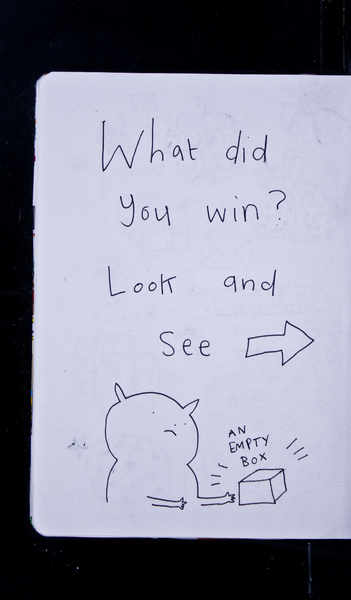 What did
you win?
Look and
see
AN
EMPTY
BOX